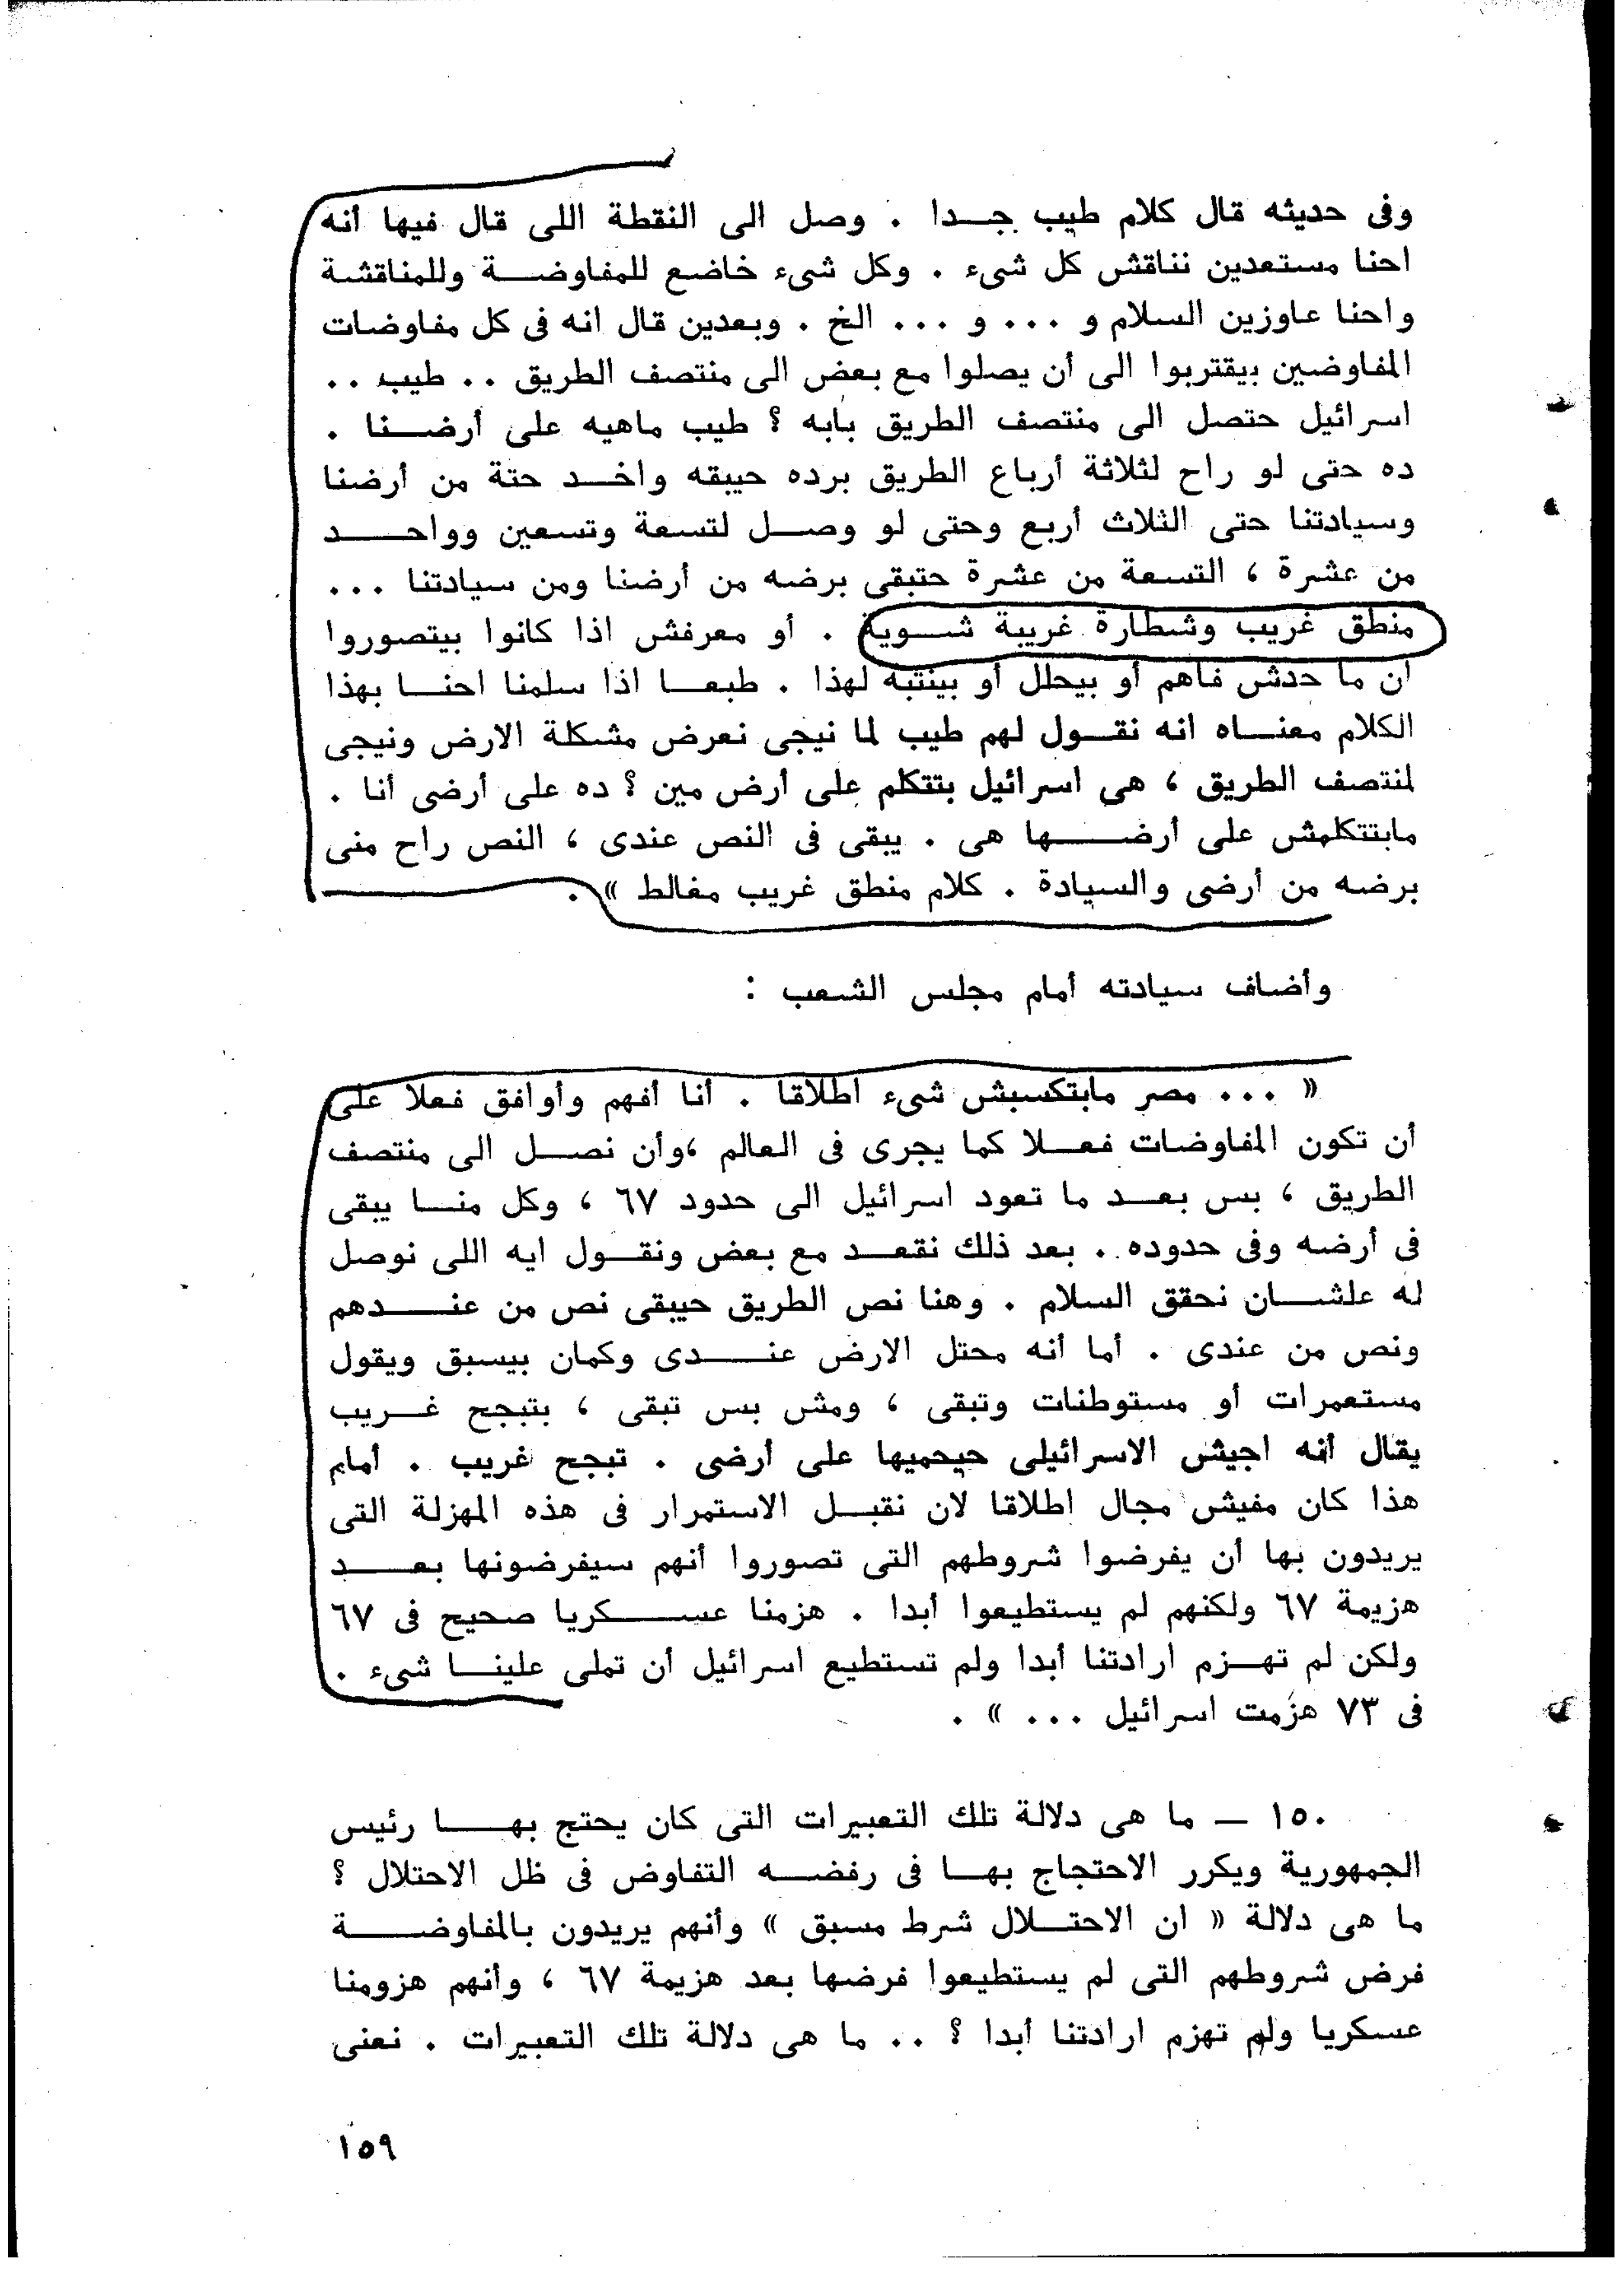 وفى حديثه قال كلام طيب جدا . وصل الى النقطة اللى قال فيها أنه
احنا مستعدين نناقش كل شىء . وكل شىء خاضع للمفاوضة وللمناقشة
واحنا عاوزين السلام و ... و ... الخ . وبعدين قال انه فى كل مفاوضات
المفاوضين بيقتربوا الى أن يصلوا مع بعض الى منتصف الطريق .. طيب ..
اسرائيل حتصل الى منتصف الطريق بأيه ؟ طيب ماهيه على أرضنا .
ده حتى لو راح لثلاثة أرباع الطريق برده حيبقه واخد حتة من أرضنا
وسيادتنا حتى الثلاث أربع وحتى لو وصل لتسعة وتسعين وواحد
من عشرة ، التسعة من عشرة حتبقى برضه من أرضنا ومن سيادتنا ...
منطق غريب وشطارة غريبة شوية . أو معرفش اذا كانوا بيتصوروا
ان ما حدش فاهم أو بيحلل أو بينتبه لهذا . طبعا اذا سلمنا احنا بهذا
الكلام معناه انه نقول لهم طيب لما نيجى نعرض مشكلة الارض ونيجى
لمنتصف الطريق ، هى اسرائيل بتتكلم على أرض مين ؟ ده على أرضى أنا .
مابتتكلمش على أرضها هى . يبقى فى النص عندى ، النص راح منى
برضه من أرضى والسيادة . كلام منطق غريب مغالط » .
وأضاف سيادته أمام مجلس الشعب :
« ... مصر مابتكسبش شىء اطلاقا . أنا أفهم وأوافق فعلا على
أن تكون المفاوضات فعلا كما يجرى فى العالم ،وأن نصل الى منتصف
الطريق ، بس بعد ما تعود اسرائيل الى حدود ٦٧ ، وكل منا يبقى
فى أرضه وفى حدوده . بعد ذلك نقعد مع بعض ونقول ايه اللى نوصل
له علشان نحقق السلام . وهنا نص الطريق حيبقى نص من عندهم
ونص من عندى . أما أنه محتل الارض عندى وكمان بيسبق ويقول
مستعمرات أو مستوطنات وتبقى ، ومش بس تبقى ، بتبجح غريب
يقال أنه اجيش الاسرائيلى حيحميها على أرضى . تبجح غريب . أمام
هذا كان مفيش مجال اطلاقا لان نقبل الاستمرار فى هذه المهزلة التى
يريدون بها أن يفرضوا شروطهم التى تصوروا أنهم سيفرضونها بعد
هزيمة ٦٧ ولكنهم لم يستطيعوا أبدا . هزمنا عسكريا صحيح فى ٦٧
ولكن لم تهزم ارادتنا أبدا ولم تستطيع اسرائيل أن تملى علينا شىء .
فى ٧٣ هزمت اسرائيل ... » .
١٥٠ ــ ما هى دلالة تلك التعبيرات التى كان يحتج بها رئيس
الجمهورية ويكرر الاحتجاج بها فى رفضه التفاوض فى ظل الاحتلال ؟
ما هى دلالة « ان الاحتلال شرط مسبق » وأنهم يريدون بالمفاوضة
فرض شروطهم التى لم يستطيعوا فرضها بعد هزيمة ٦٧ ، وأنهم هزومنا
عسكريا ولم تهزم ارادتنا أبدا ؟ .. ما هى دلالة تلك التعبيرات . نعنى
١٥٩